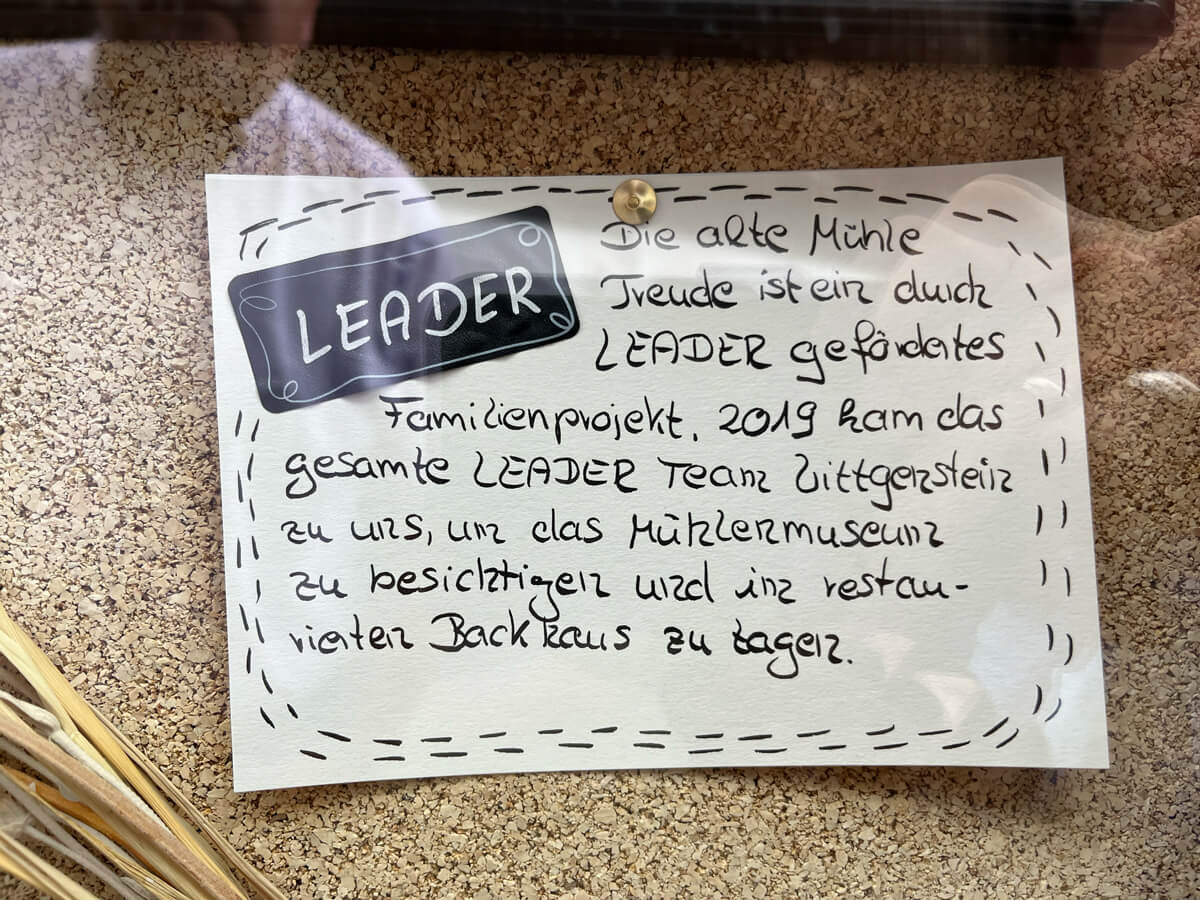 LEADER
Die alte Mühle
Treude ist ein durch
LEADER gefördertes
Familienprojekt. 2019 kam das
gesamte LEADER Team Wittgenstein
zu uns, um das Mühlenmuseum
zu besichtigen und im restau-
rierten Backhaus zu tagen.